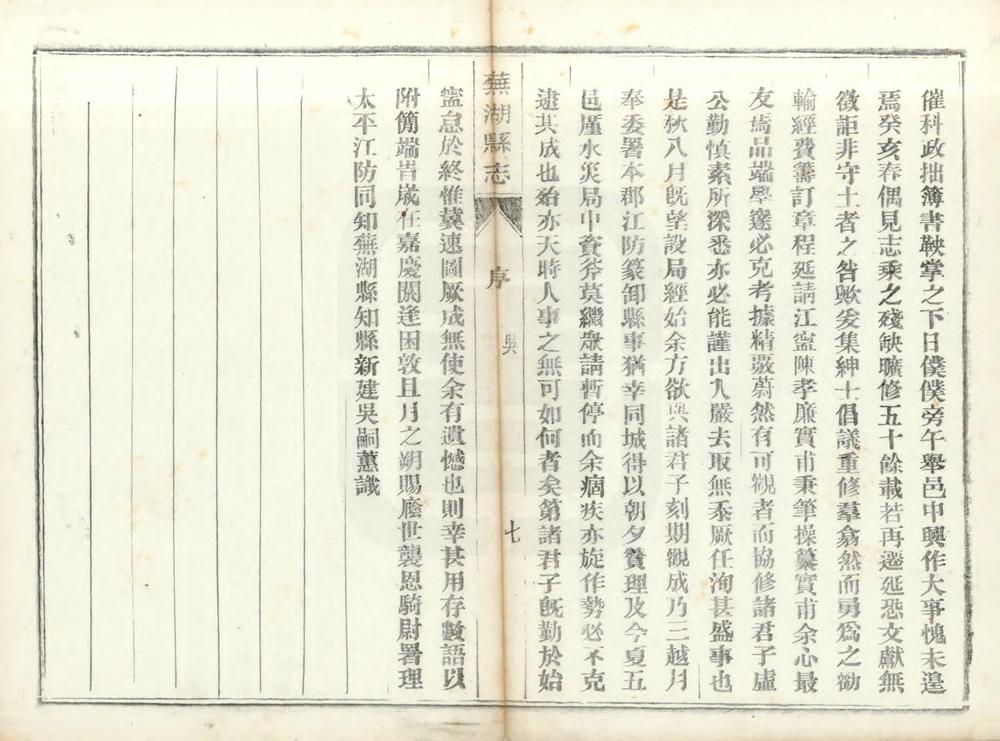 催科政拙簿書鞅掌之下日僕僕旁午舉邑中興作大事愧未遑
焉癸亥春偶見志乘之殘缺曠修五十餘載若再遷延恐文獻無
徵詎非守土者之咎歟爰集紳士倡議重修羣翕然而勇爲之勸
輸經費籌訂章程延請江寧陳孝廉實甫秉筆操纂實甫余心最
友焉品端學邃必克考據精覈蔚然有可觀者而協修諸君子虛
公勤慎素所深悉亦必能謹出入嚴去取無忝厥任洵甚盛事也
是秋八月旣望設局經始余方欲與諸君子刻期觀成乃三越月
奉委署本郡江防篆卸縣事猶幸同城得以朝夕贊理及今夏五
邑罹水災局中資斧莫繼衆請暫停而余痼疾亦旋作勢必不克
逮其成也殆亦天時人事之無可如何者矣第諸君子旣勤於始
蕪湖縣志
序
吳
七
寧怠於終惟冀速圖厥成無使余有遺憾也則幸甚用存數語以
附簡端時歲在嘉慶閼逢困敦且月之朔賜廕世襲恩騎尉署理
太平江防同知蕪湖縣知縣新建吳嗣蕙識